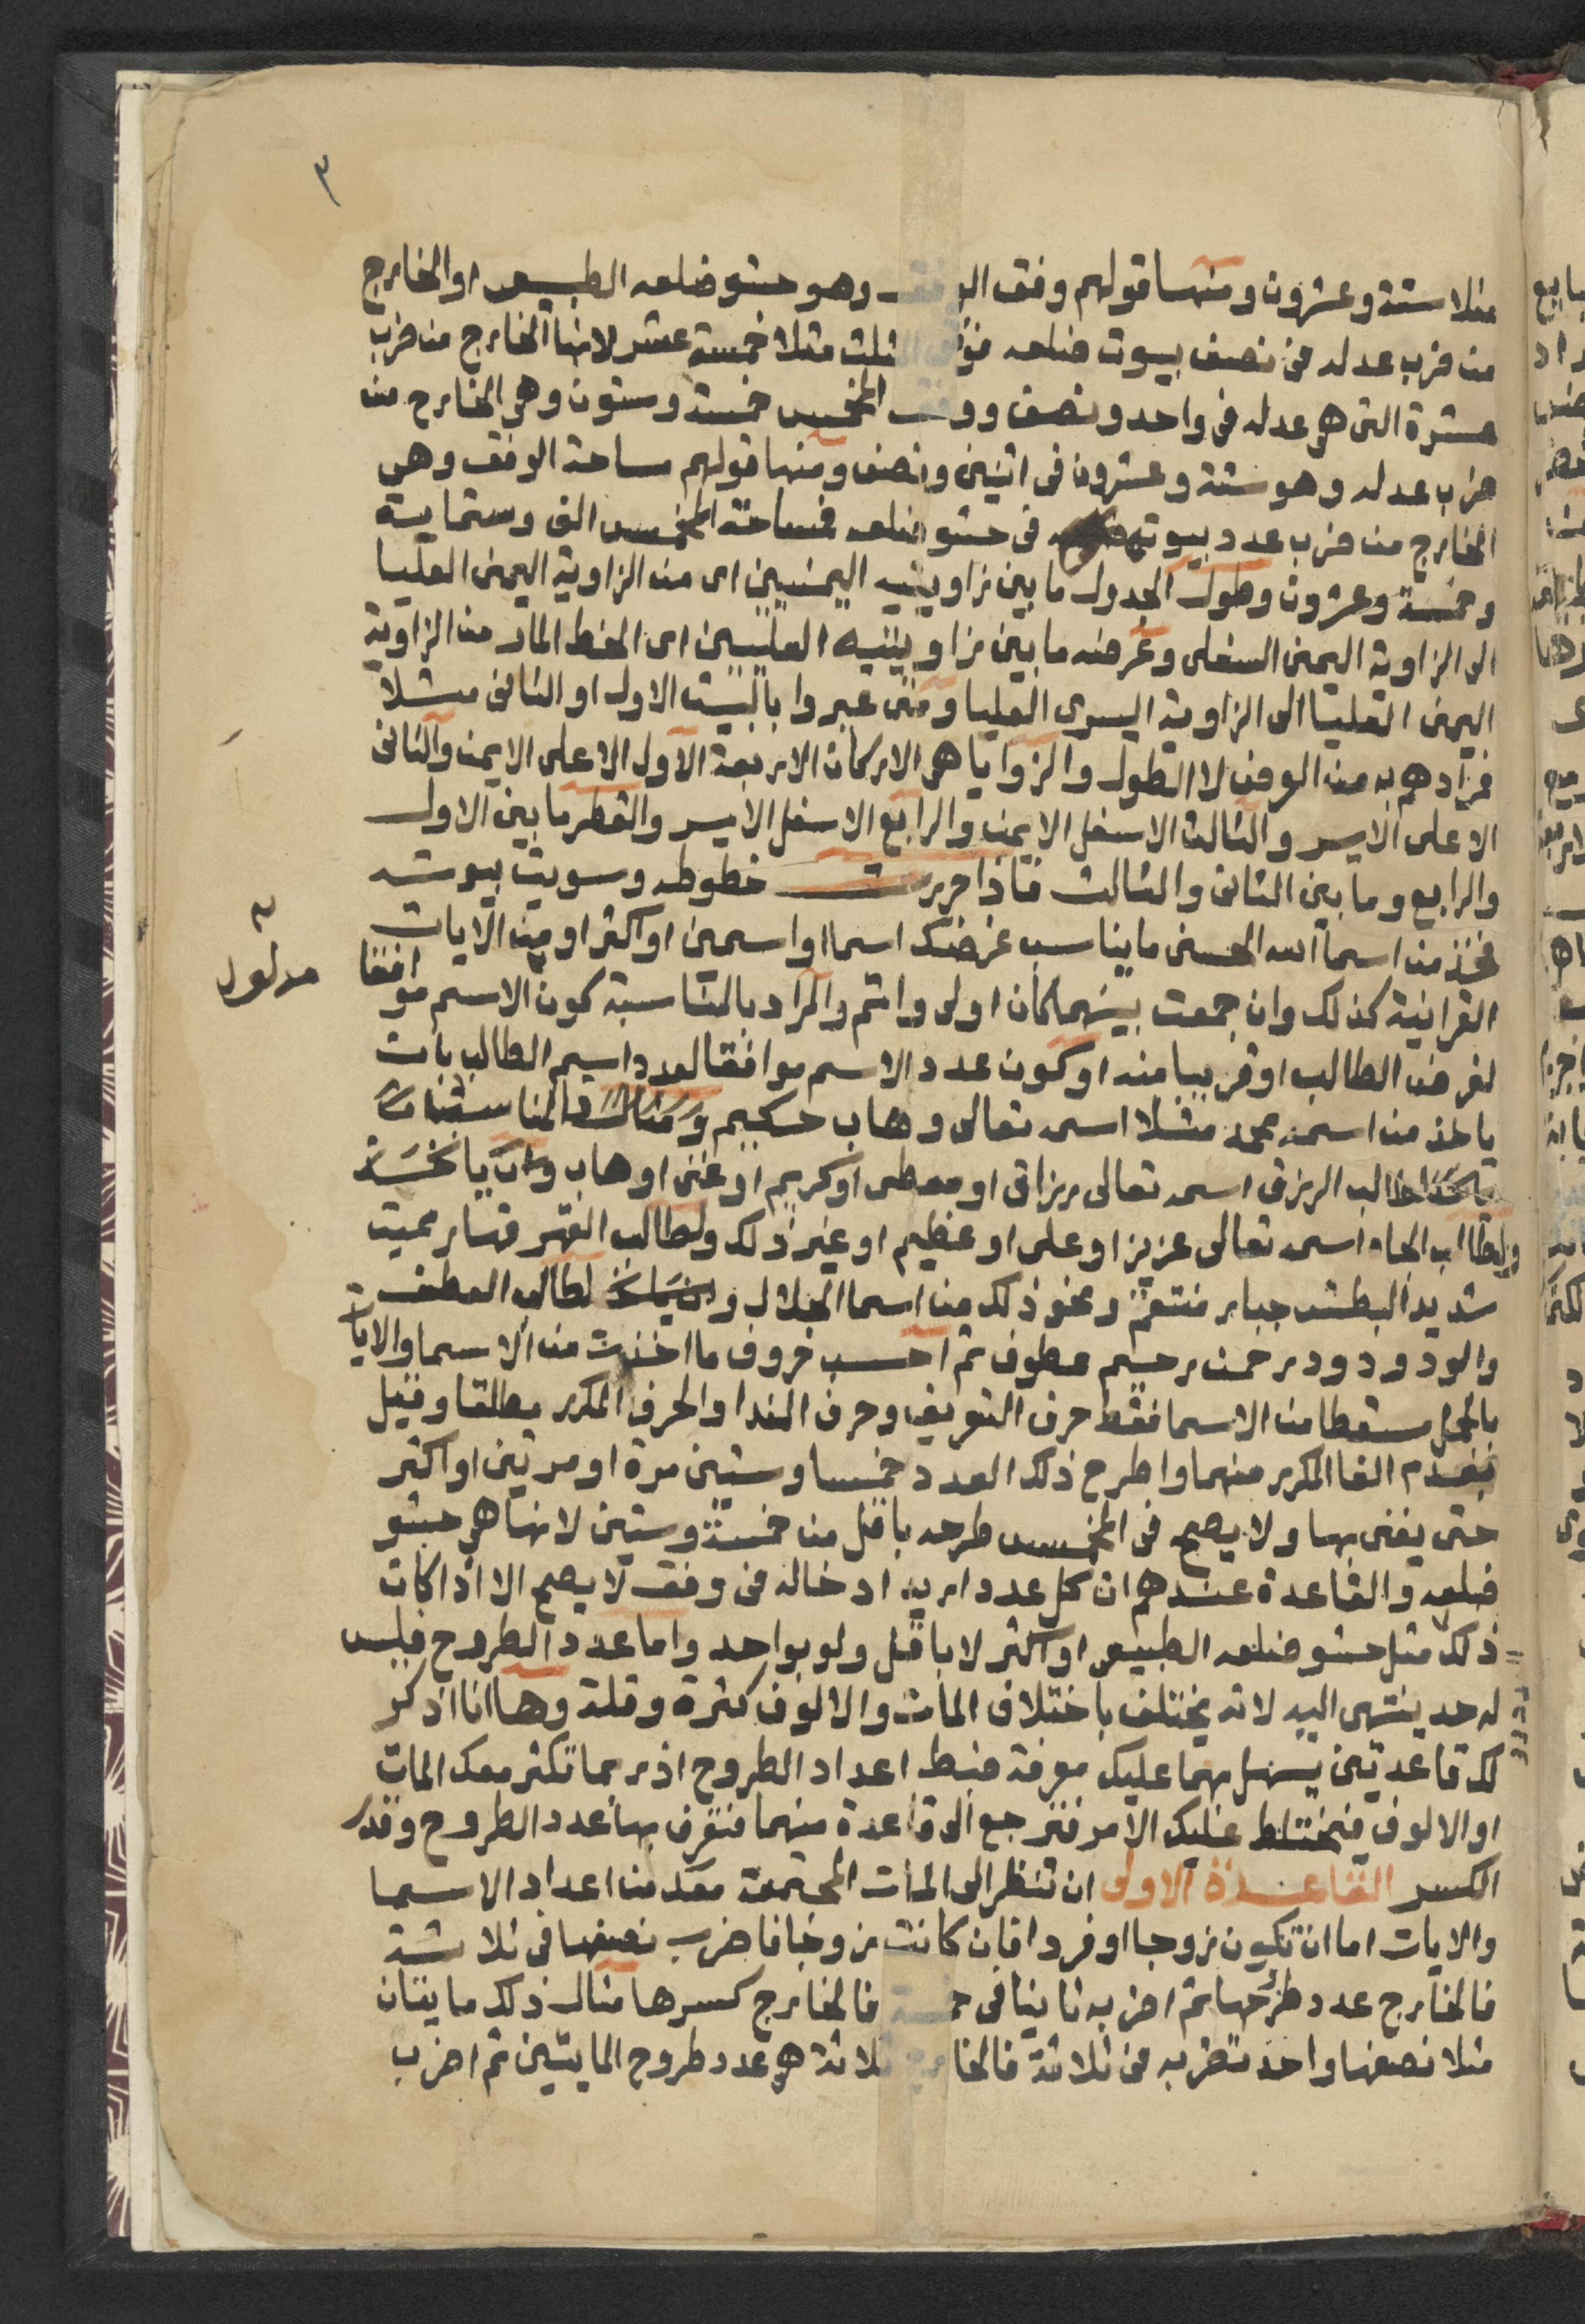 ٣
مثلا ستة وعشرون ومنها قولهم وفق الوفق وهو حشو ضلعه الطبيعى او الخارج
من ضرب عدله فى نصف بيوت ضلعه فوفق المثلث مثلا خمسة عشر لانها الخارج من ضرب
عشرة التى هى عدله فى واحد ونصف ووفق المخمس خمسة وستون وهى الخارج من
ضرب عدله وهو ستة وعشرون فى اثنين ونصف ومنها قولهم مساحة الوفق وهى
الخارج من ضرب عدد بيوته فى حشو ضلعه فمساحة المخمس الف وستماية
وخمسة وعشرون وطول الجدول ما بين زاويتيه اليمنيين اى من الزاوية اليمنى العليا
الى الزاوية اليمنى السفلى وعرضه ما بين زاويتيه العليين اى الخط المار من الزاوية
اليمنى العليا الى الزاوية اليسرى العليا ومتى عبروا بالبيت الاول او الثانى مثلا
فمرادهم به من العرض لا الطول والزوايا هى الاركان الاربعة الاول الاعلى الايمن والثانى
الاعلى الايسر والثالث الاسفل الايمن والرابع الاسفل الايسر والقطر ما بين الاول
والرابع وما بين الثانى والثالث فاذا حررت خطوطه وسويت بيوته
فخذ من اسما الله الحسنى ما يناسب غرضك اسما او اسمين او اكثر او من الايات
القرانية كذلك وان جمعت بينهما كان اولى واتم والمراد بالمناسبة كون الاسم موافقا
لغرض الطالب او قريبا منه او كون عدد الاسم موافقا لعدد اسم الطالب بان
ياخذ من اسمه محمد مثلا اسمه تعالى وهاب حكيم ومثال المناسبة
لطالب الرزق اسمه تعالى رزاق او معطى او كريم او غنى او وهاب
ولطالب الجاه اسمه تعالى عزيز او على او عظيم او غير ذلك ولطالب القهر قهار مميت
شديد البطش جبار منتقم ونحو ذلك من اسما الجلال لطالب العطف
والود ودود رحمن رحيم عطوف ثم احسب حروف ما اخذت من الاسما والايات
بالجمل مسقطا من الاسما فقط حرف التعريف وحرف الندا والحرف المكرر مطلقا وقيل
بعدم الغا المكرر منهما واطرح ذلك العدد خمسا وستين مرة او مرتين او اكثر
حتى يفنى بها ولا يصح فى المخمس طرحه باقل من خمسة وستين لانها هى حشو
ضلعه والقاعدة عندهم ان كل عدد اريد ادخاله فى وفق لا يصح الا اذا كان
ذلك مثل حشو ضلعه الطبيعى او اكثر لا باقل ولو بواحد واما عدد الطروح فليس
له حد ينتهى اليه لانه يختلف باختلاف المات والالوف كثرة وقلة وها انا اذكر
لك قاعدتين يسهل بهما عليك معرفة ضبط اعداد الطروح اذ ربما تكثر معك المات
او الالوف فيختلط عليك الامر فترجع الى قاعدة منهما فتعرف بها عدد الطروح وقدر
الكسر القاعدة الاولى ان تنظر الى المات المجتمعة معك من اعداد الاسما
والايات اما ان تكون زوجا او فردا فان كانت زوجا فاضرب نصفها فى ثلاثة
فالخارج عدد طرحها ثم اضربه ثانيا فى خمسة فالخارج كسرها مثال ذلك مايتان
مثلا نصفها واحد تضربه فى ثلاثة فالخارج ثلاثة هى عدد طروح المايتين ثم اضرب